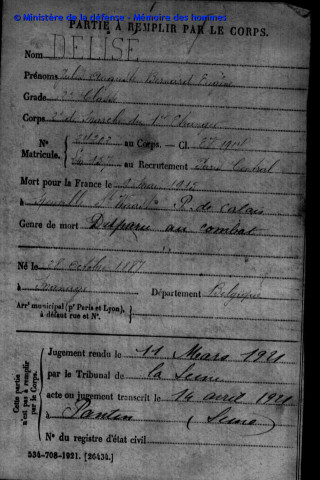 © Ministère de la défense - Mémoire des hommes
PARTIE À REMPLIR PAR LE CORPS.
Nom DELISE
Prénoms Jules Auguste Bernard Eugène
Grade 2e
Corps 2e de marche du 1er
N° au Corps. — Cl.
Matricule. au Recrutement Seine Central
Mort pour la France le 9 mai 1915
à P. de Calais
Genre de mort Disparu au combat
Né le 28 Octobre 1887
à Département Belgique
Arrt municipal (pr Paris et Lyon),
à défaut rue et N°.
Cette partie
n'est pas à remplir
par le Corps.
Jugement rendu le 11 Mars 1921
par le Tribunal de la Seine
acte ou jugement transcrit le 14 avril 1921
à Pantin (Seine)
N° du registre d'état civil
534-708-1921. [26434.]